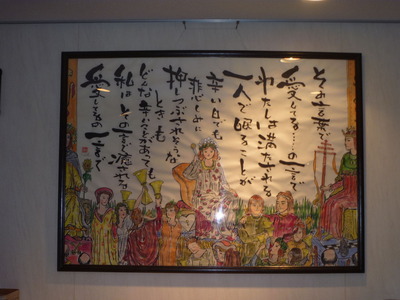 その言葉で
愛してる…の一言で
わたしは満たされる
一人で眠ることが
辛い日でも
悲しみに
押しつぶされそうな
ときも
どんな辛いことがあっても
私はその一言で癒される
愛してるの一言で